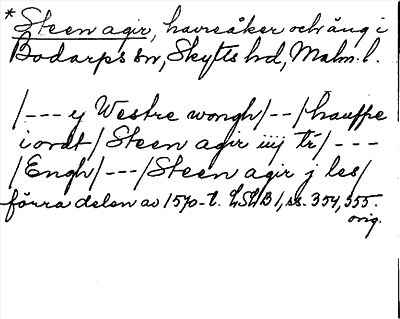 * Steen agir, havreåker och äng i
Bodarps sn, Skytts hd, Malm. l.
/--- y Westre wongh/--/hauffre
iordt/Steen agir iiij tr/---
/Engh/---/Steen agir j les/
förra delen av 1570-t. LSLB 1, ss. 354, 355.
orig.